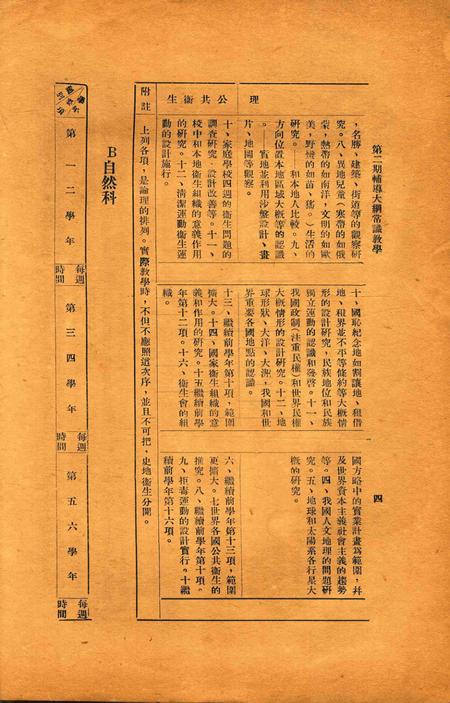 第二期輔導大綱常識教學
四
理
，名勝、建築、街道等的觀察研
究。八、異地兒童（寒帶的如俄
蒙，熱帶的如南洋，文明的如歐
美，野蠻的如苗、猺。）生活的
研究。——和本地人比較。九、
方向位置本地區域大概等的認識
。——實地並利用沙盤設計、畫
片、地圖等觀察。
十、國恥紀念地如割讓地、租借
地、租界並不平等條約等大概情
形的設計研究，民族地位和民族
獨立運動的認識和發啓。十一、
我國政制（注重民權）和世界民權
大概情形的設計研究。十二、地
球形狀、大洋、大洲，我國和世
界重要各國地點的認識。
國方略中的實業計畫爲範圍，幷
及世界資本主義社會主義的趨勢
等。四、我國人文地理的問題研
究。五、地球和太陽系各行星大
概的研究。
公共衛生
十、家庭學校四週的衛生問題的
調查研究，設計改善等。十一、
校中和本地衛生組織的意義作用
的研究。十二、清潔運動衛生運
動的設計施行。
十三、繼續前學年第十項，範圍
擴大。十四、國家衛生組織的意
義和作用的研究。十五繼續前學
年第十二項。十六、衛生會的組
織。
六、繼續前學年第十三項，範圍
更擴大。七世界各國公共衛生的
推究。八、繼續前學年第十項。
九、拒毒運動的設計實行。十繼
續前學年第十六項。
附註
上列各項，是論理的排列。實際教學時，不但不應照這次序，並且不可把，史地衛生分開。
B自然科
第一二學年
每週時間
第三四學年
每週時間
第五六學年
每週時間